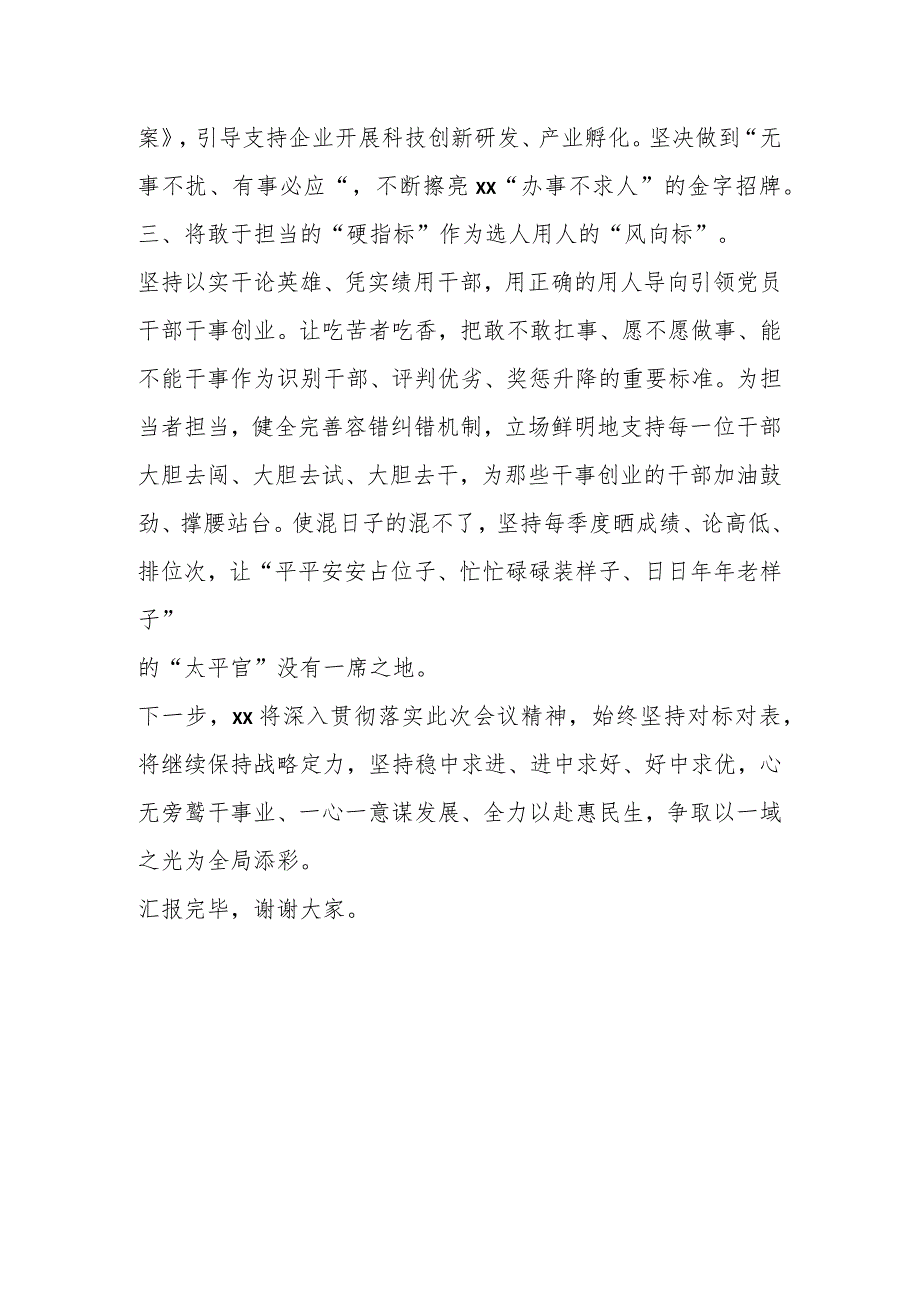 案》，引导支持企业开展科技创新研发、产业孵化。坚决做到“无
事不扰、有事必应“，不断擦亮xx“办事不求人”的金字招牌。
三、将敢于担当的“硬指标”作为选人用人的“风向标”。
坚持以实干论英雄、凭实绩用干部，用正确的用人导向引领党员
干部干事创业。让吃苦者吃香，把敢不敢扛事、愿不愿做事、能
不能干事作为识别干部、评判优劣、奖惩升降的重要标准。为担
当者担当，健全完善容错纠错机制，立场鲜明地支持每一位干部
大胆去闯、大胆去试、大胆去干，为那些干事创业的干部加油鼓
劲、撑腰站台。使混日子的混不了，坚持每季度晒成绩、论高低、
排位次，让“平平安安占位子、忙忙碌碌装样子、日日年年老样
子”
的“太平官”没有一席之地。
下一步，xx将深入贯彻落实此次会议精神，始终坚持对标对表，
将继续保持战略定力，坚持稳中求进、进中求好、好中求优，心
无旁鹜干事业、一心一意谋发展、全力以赴惠民生，争取以一域
之光为全局添彩。
汇报完毕，谢谢大家。